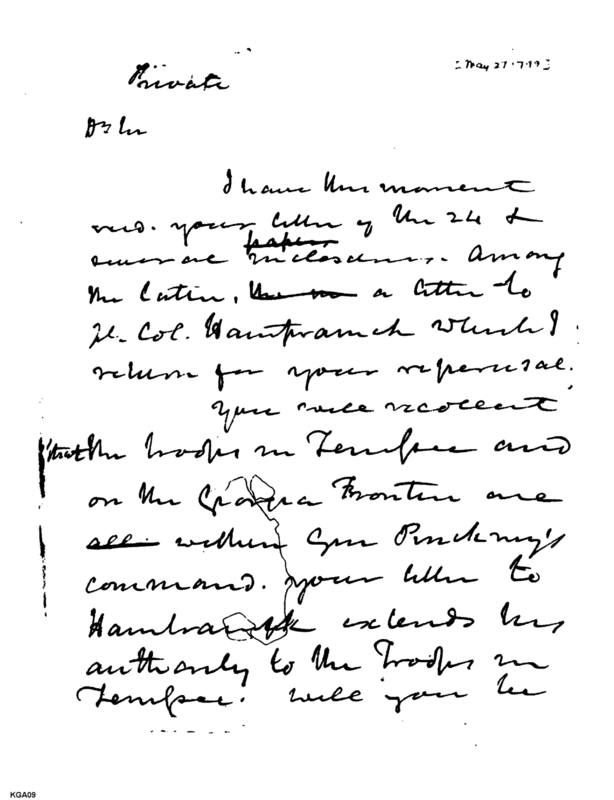 [May 27. 1799]
Private
Dr Sir
I have this moment
recd. your letter of the 24 &
several papers inclosures. Among
the latter, a letter to
Lt. Col. Hamtramck which I
return for your reperusal.
You will recollect
that the troops in Tennessee and
on the Georgia Frontier are
all within Gen Pinckney's
command. your letter to
Hamtramck extends his
authority to the Troops in
Tennessee. will you be
KGA09